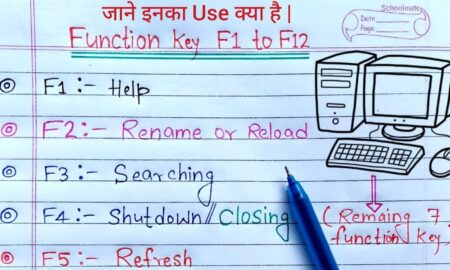 जाने इनका Use क्या है |
Schoolmate
Date
Page
Function Key F1 to F12
F1 :- Help
F2 :- Rename or Reload
F3 :- Searching
F4 :- Shutdown//Closing
(Remaing 7 function key)
F5 :- Refresh